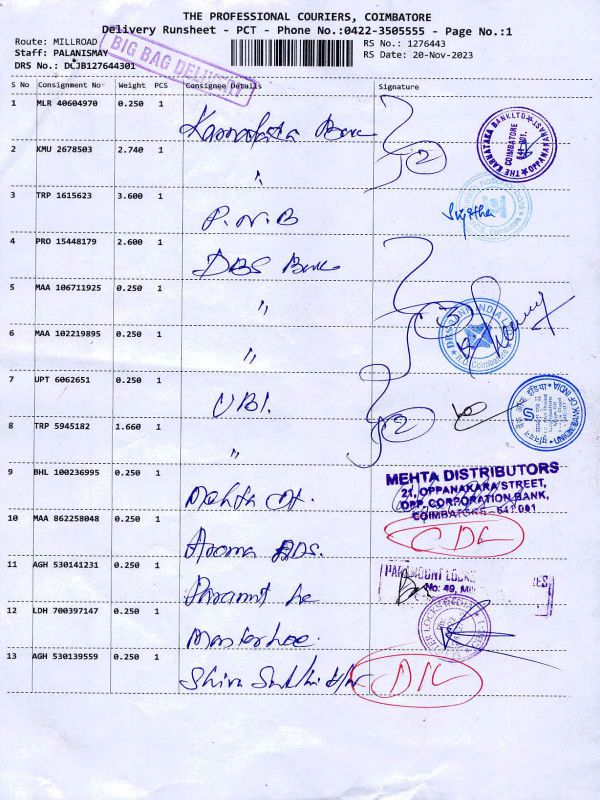 THE PROFESSIONAL COURIERS, COIMBATORE
Delivery Runsheet - PCT - Phone No.:0422-3505555 - Page No.:1
Route: MILLROAD
RS No.: 1276443
Staff: PALANISMAY
RS Date: 20-Nov-2023
DRS No.: DCJB127644301
BIG BAG DELIVERY
S No Consignment No Weight PCS Consignee Details Signature
1 MLR 40604970 0.250 1 Karnataka Bank
THE KARNATAKA BANK LTD
COIMBATORE
641 001.
2 KMU 2678503 2.740 1 "
2
3 TRP 1615623 3.600 1 P.N.B
Sujitha
4 PRO 15448179 2.600 1 DBS Bank
5 MAA 106711925 0.250 1 "
3
DBS BANK INDIA
6 MAA 102219895 0.250 1 "
7 UPT 6062651 0.250 1 UBI.
2
UNION BANK OF INDIA
8 TRP 5945182 1.660 1 "
9 BHL 100236995 0.250 1 Mehta
MEHTA DISTRIBUTORS
21, OPPANAKARA STREET,
OPP. CORPORATION BANK,
COIMBATORE - 641 001
10 MAA 862258048 0.250 1 Aroma ADS.
11 AGH 530141231 0.250 1
PARAMOUNT LOCKS
No: 49,
12 LDH 700397147 0.250 1
13 AGH 530139559 0.250 1 Shiva Sakthi